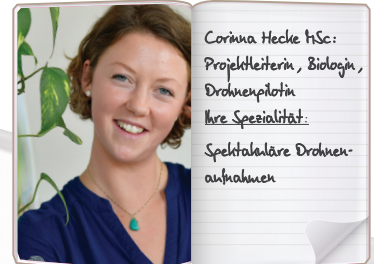 Corinna Hecke MSc:
Projektleiterin, Biologin,
Drohnenpilotin
Ihre Spezialität:
Spektakuläre Drohnen-
aufnahmen